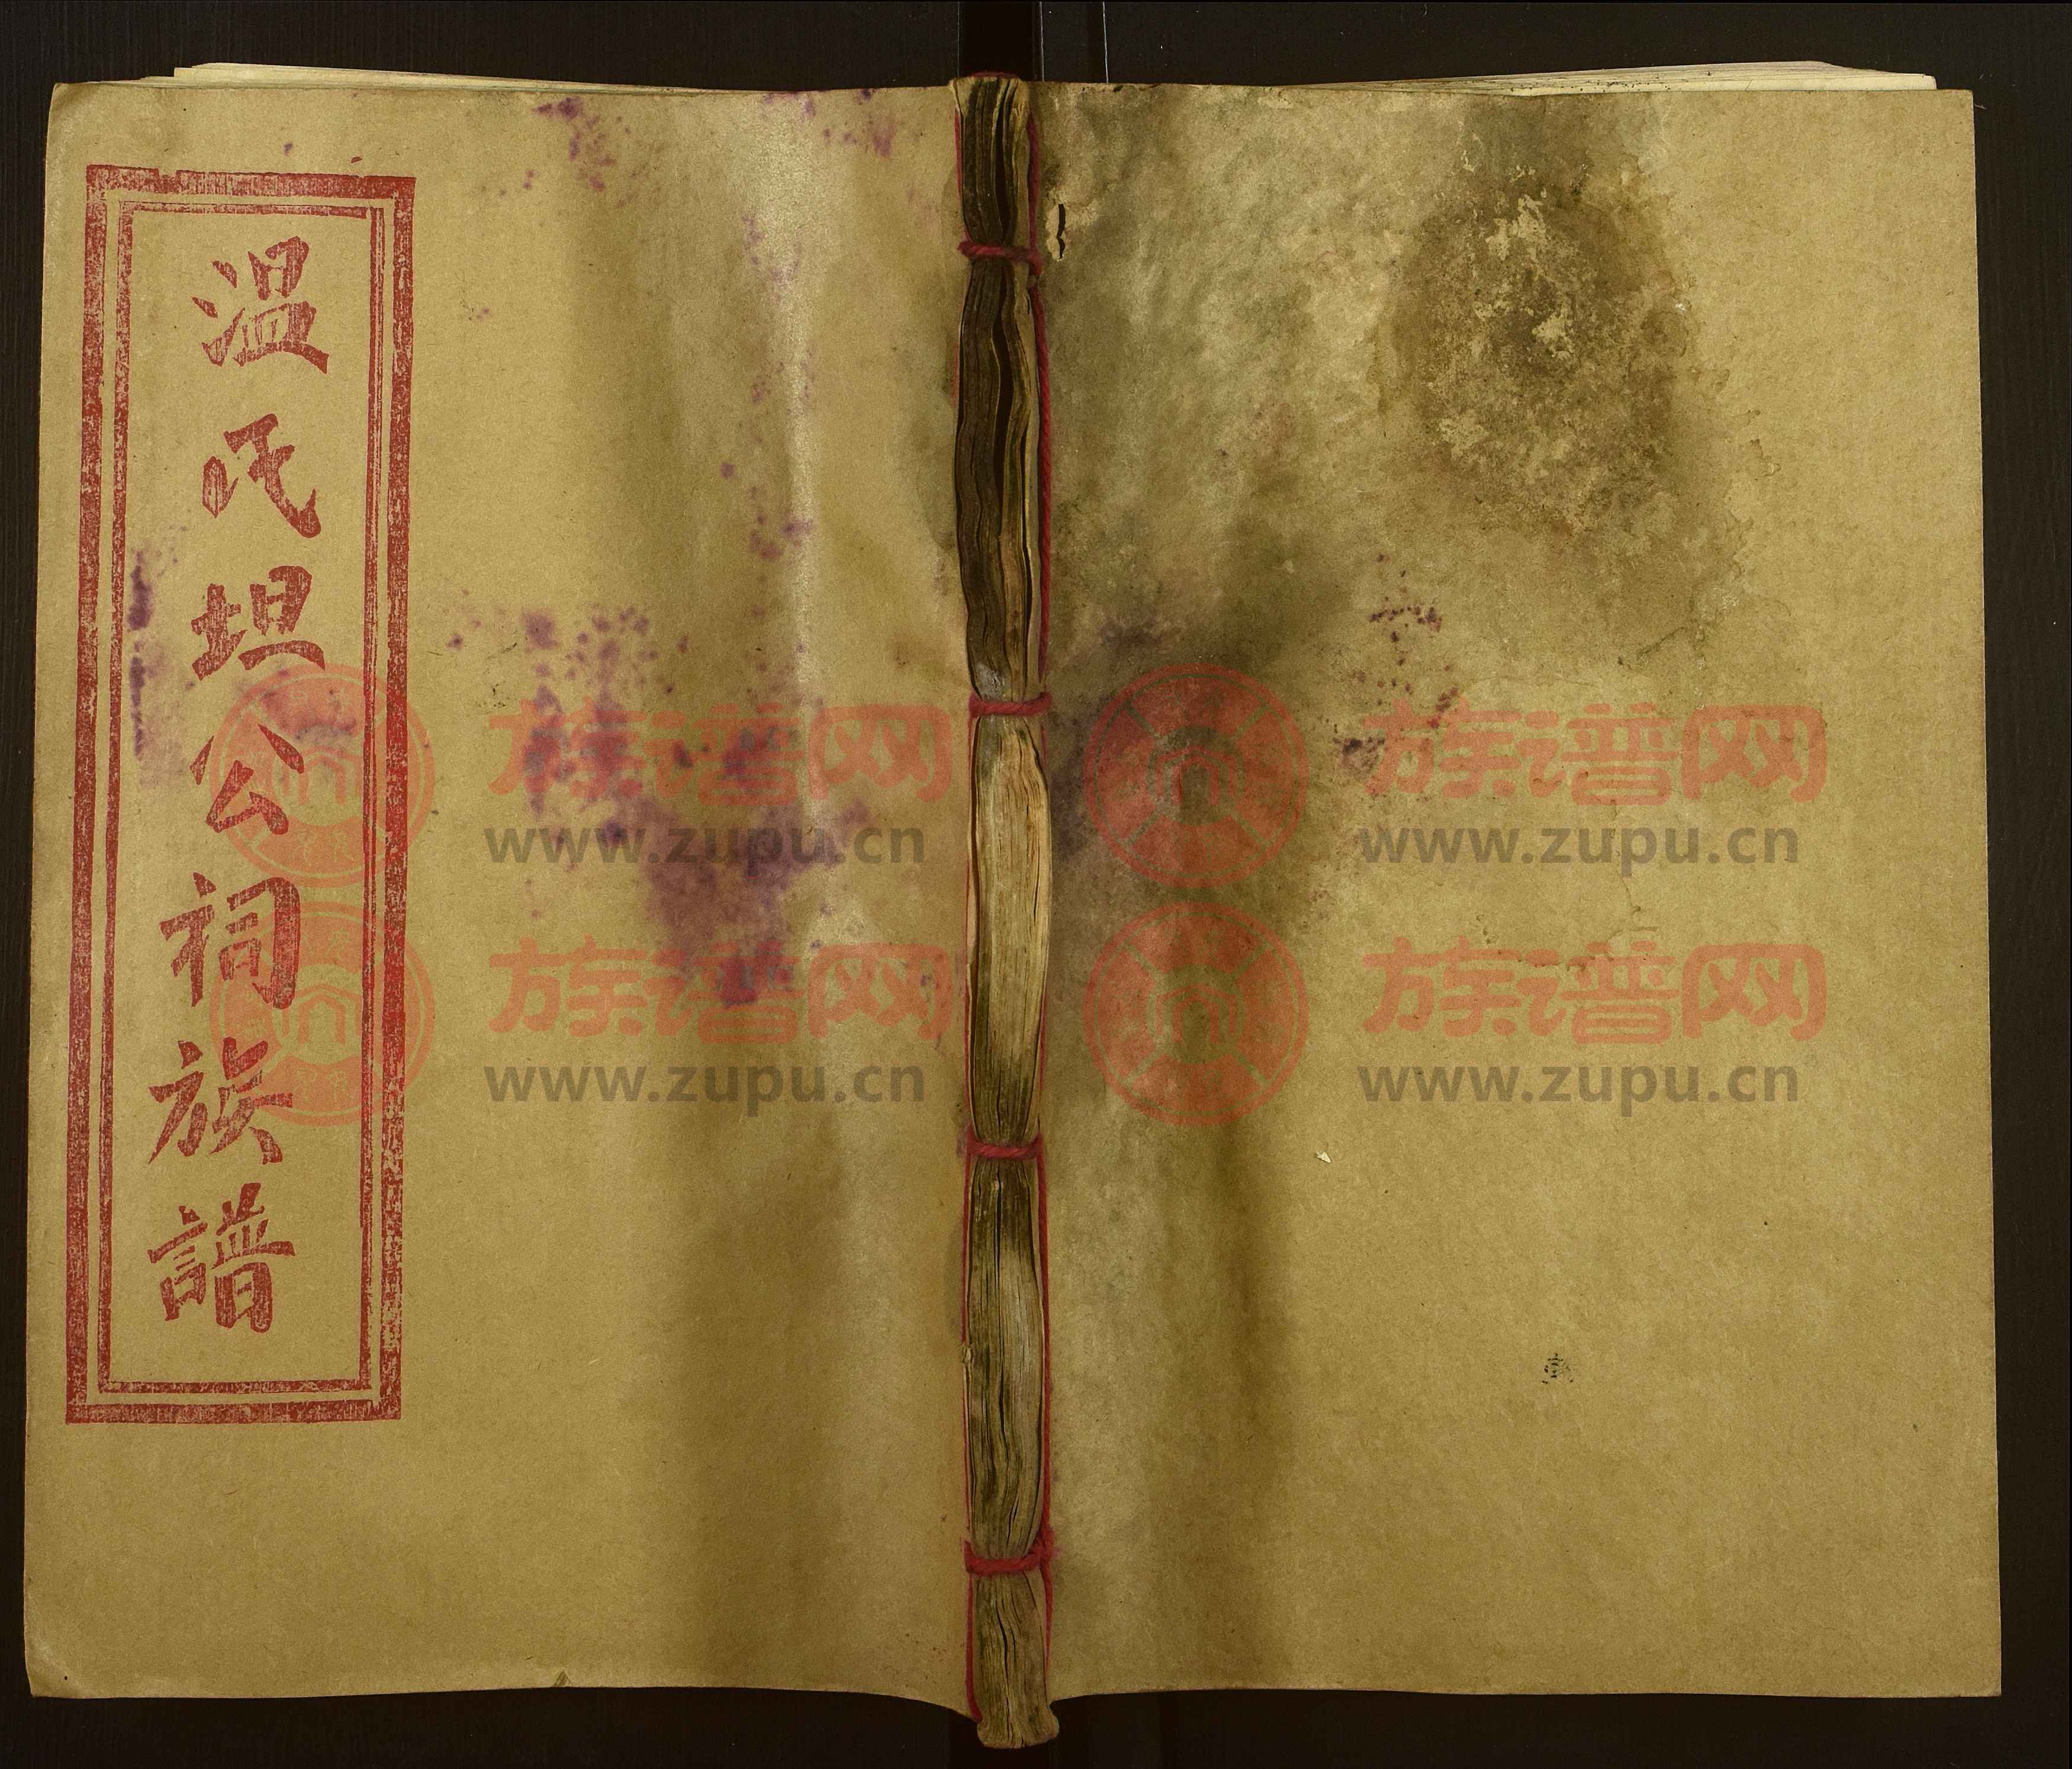 溫氏坦公祠族譜
族谱网
www.zupu.cn
族谱网
www.zupu.cn
族谱网
www.zupu.cn
族谱网
www.zupu.cn